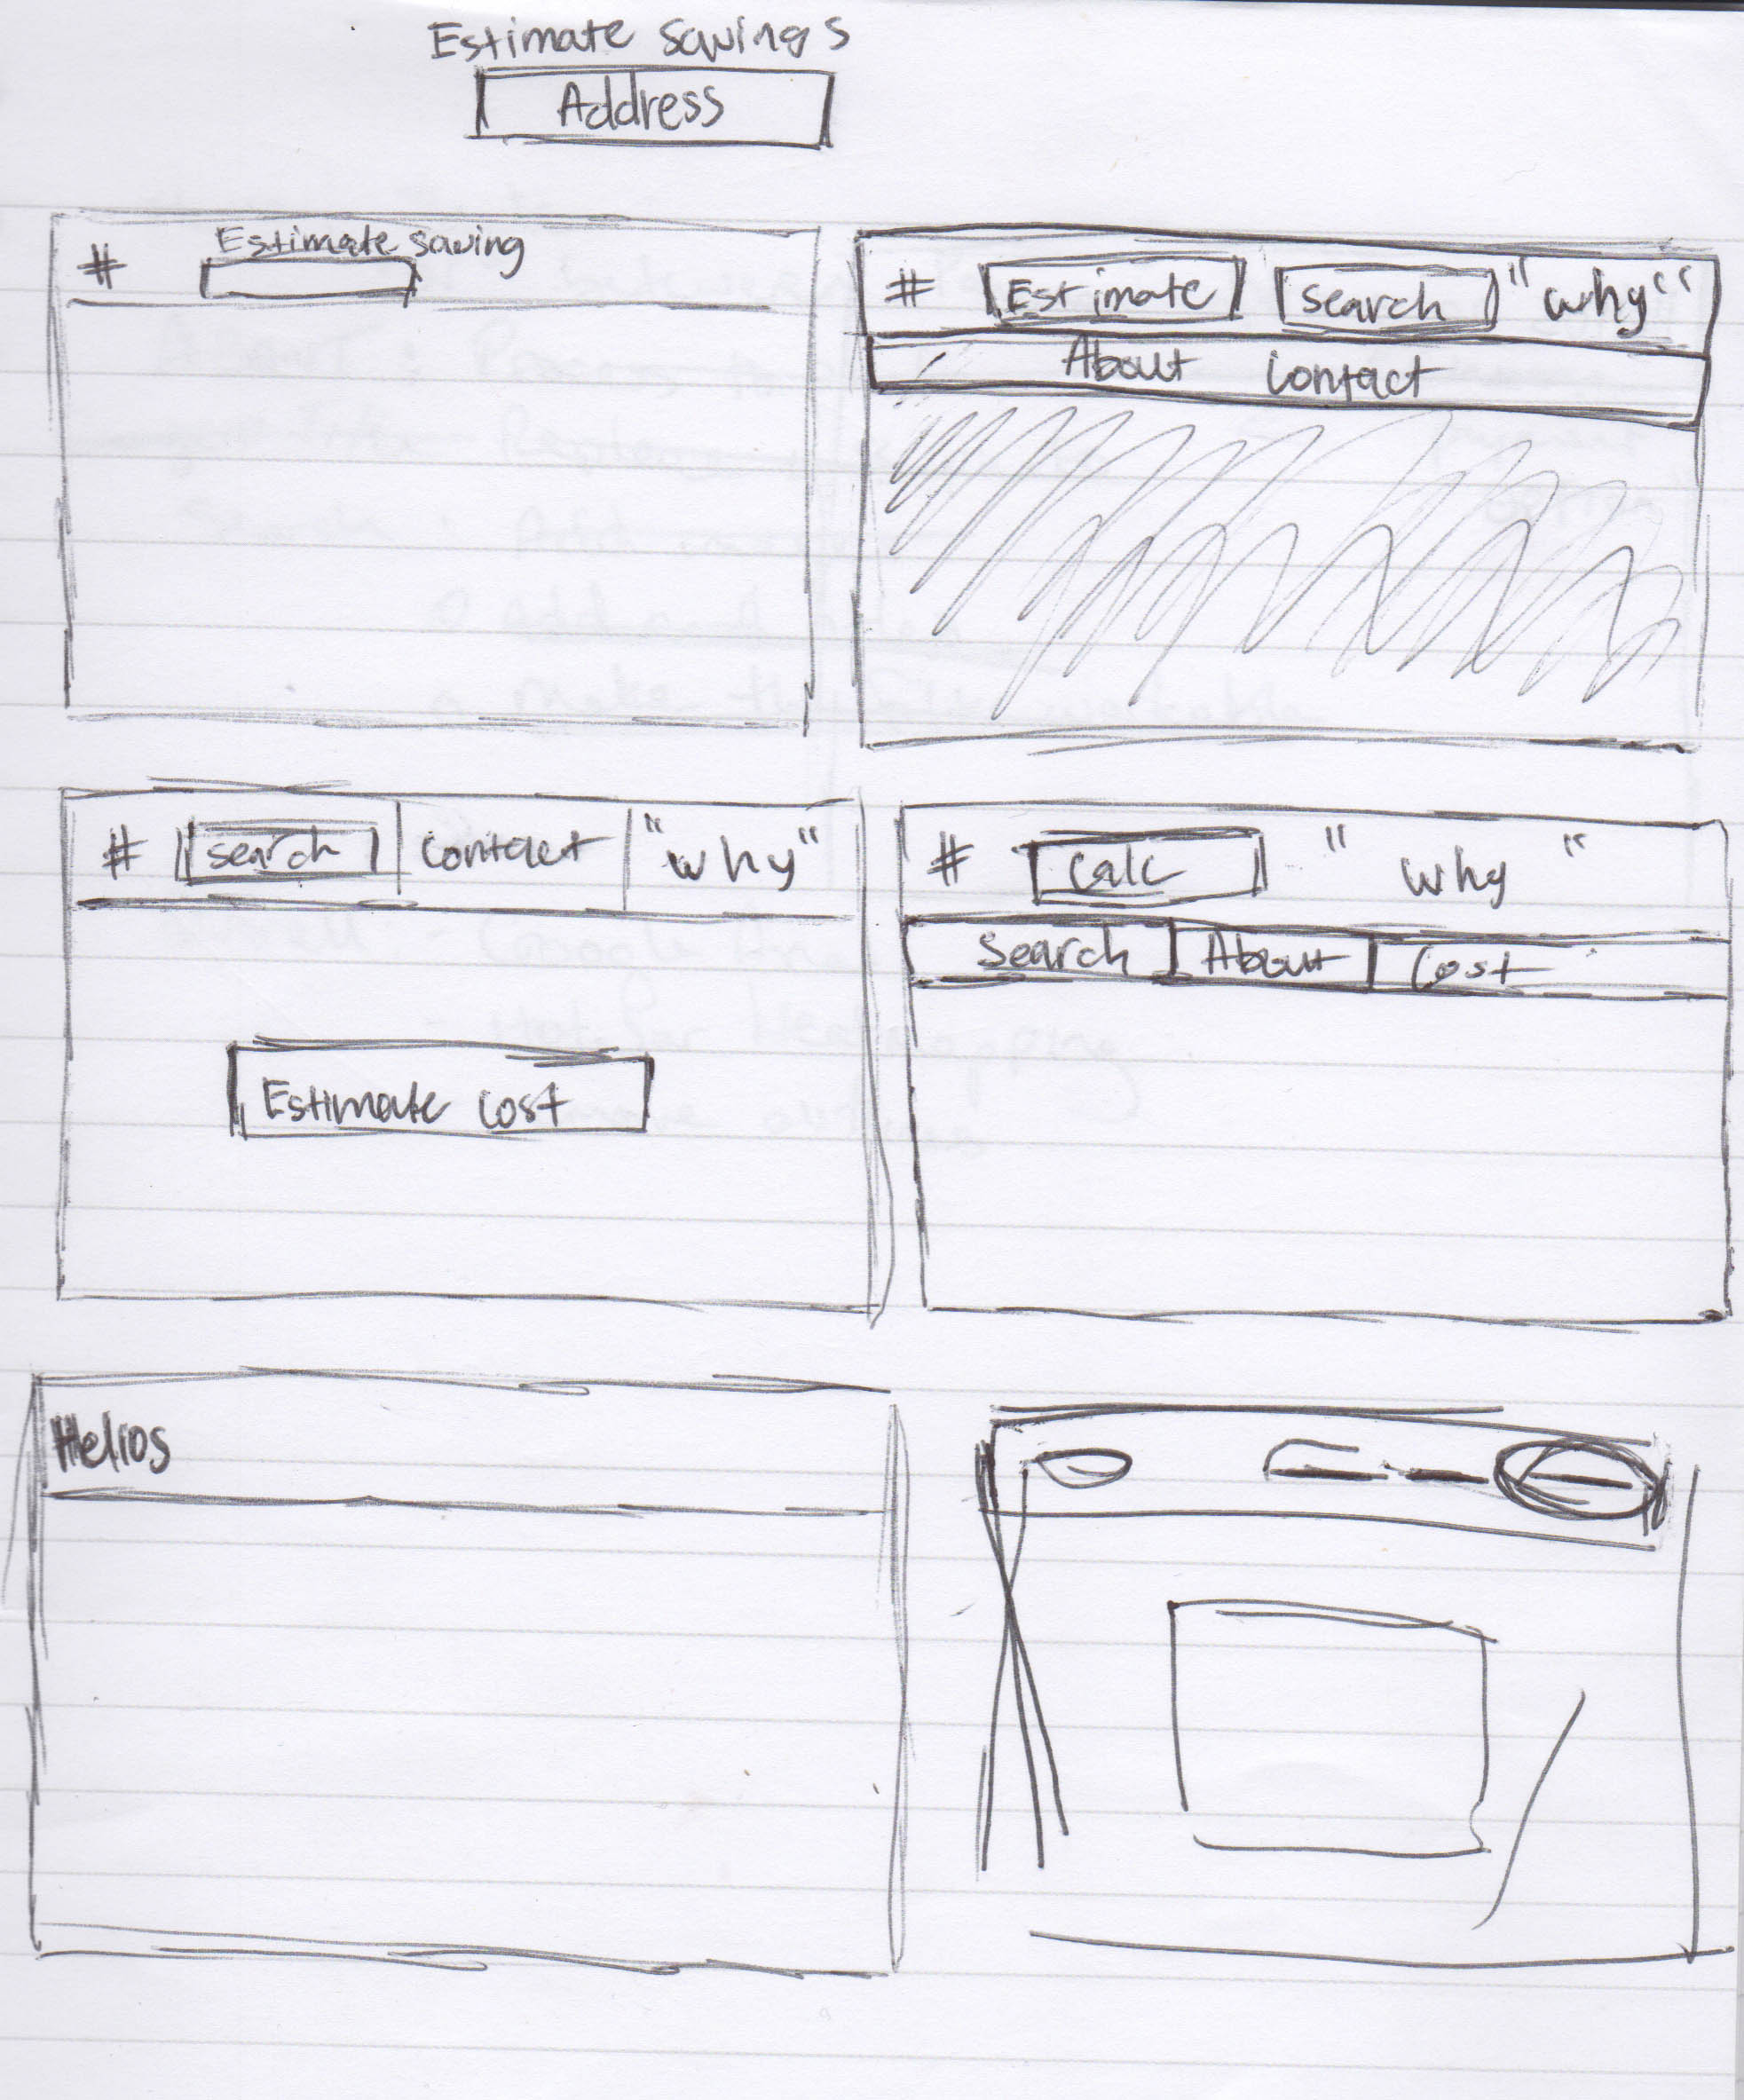 Estimate savings
Address
# Estimate saving
# Estimate search "why"
About Contact
# search contact "why"
Estimate cost
# calc " why "
Search About Cost
Helios